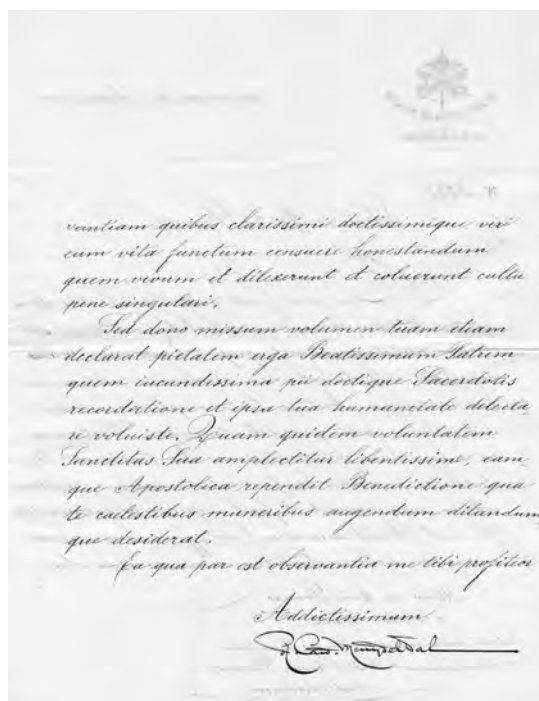 vantiam quibus clarissimi doctissimique viri
eum vita functum censuere honestandum
quem vivum et dilexerunt et coluerunt cultu
pene singulari.
Sed dono missum volumen tuam etiam
declarat pietatem erga Beatissimum Patrem
quem iucundissima pii doctique Sacerdotis
recordatione et ipsa tua humanitate delecta
re voluiste. Quam quidem voluntatem
Sanctitas Sua amplectitur libentissime, eam
que Apostolica rependit Benedictione qua
te caelestibus muneribus augendum ditandum
que desiderat.
Ea qua par est observantia me tibi profiteor
Addictissimum
R. Card. Merry del Val